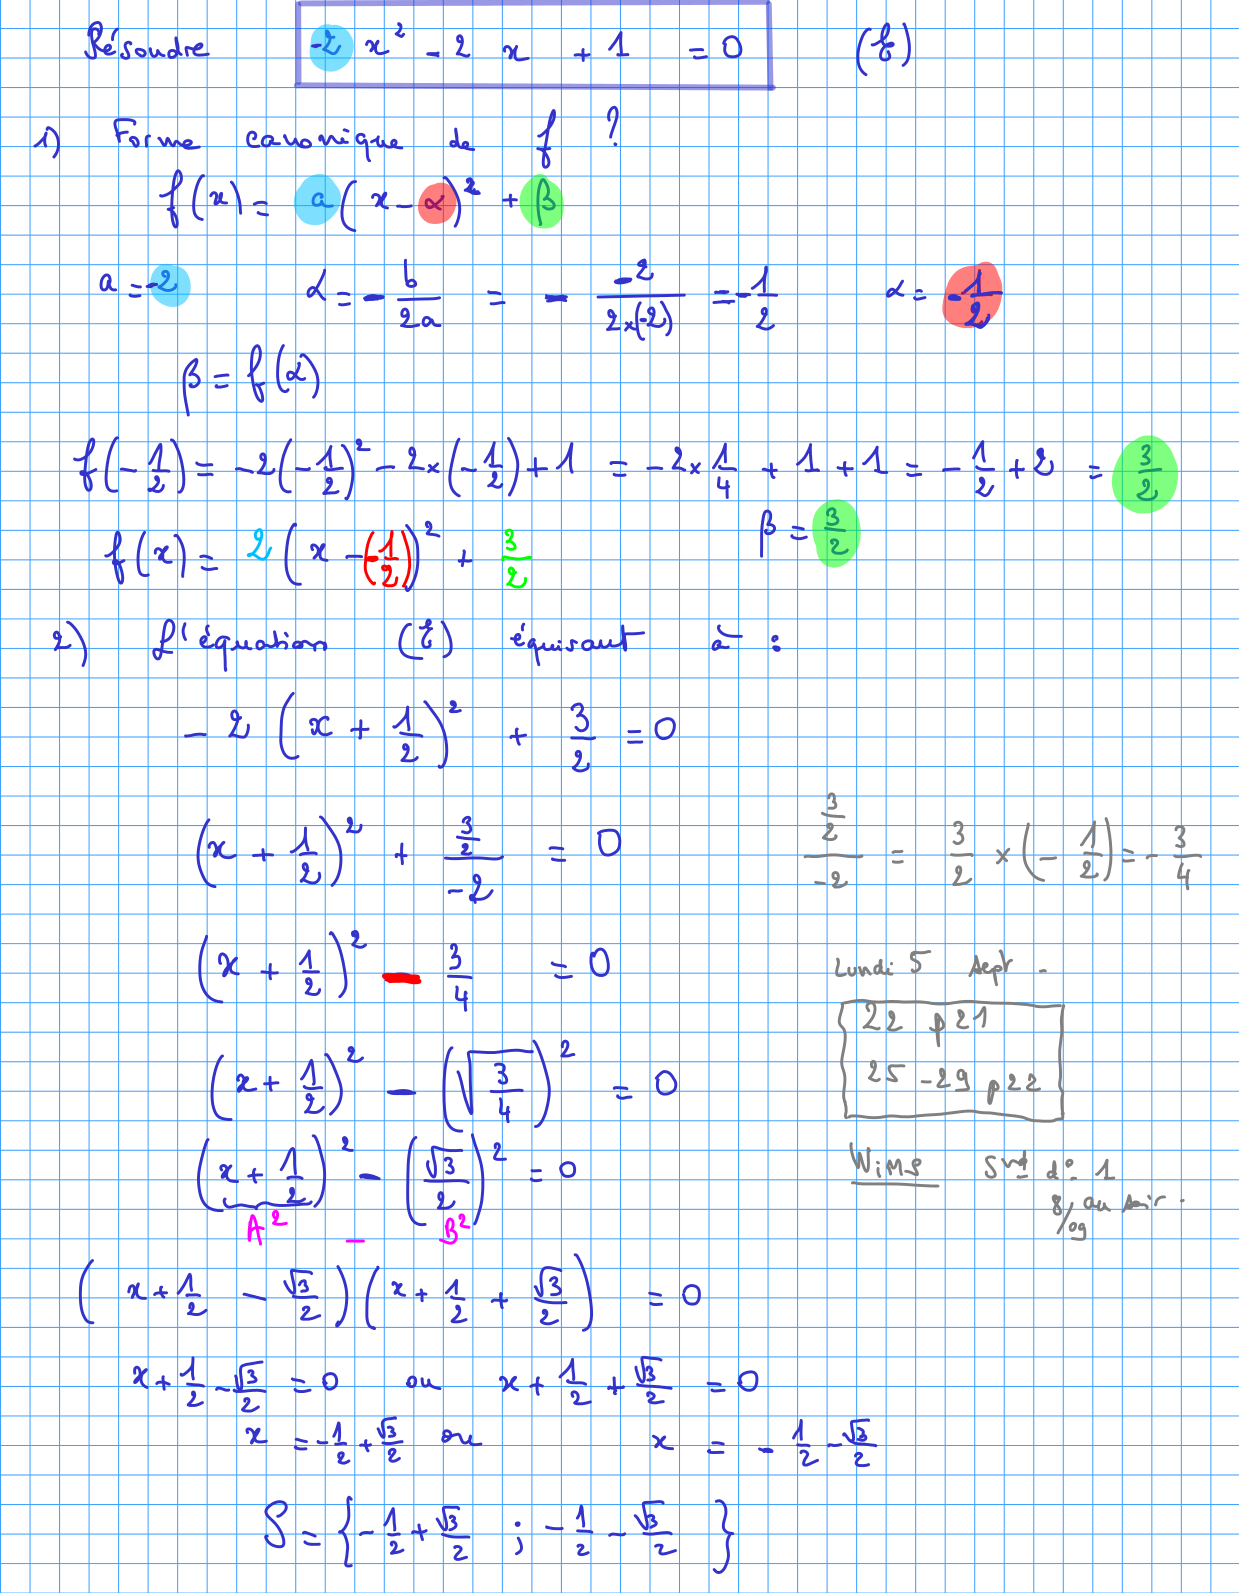 Résoudre -2 x² - 2 x + 1 = 0 (E)
1) Forme canonique de f ?
f(x) = a(x - α)² + β
a = -2 α = - b/2a = - -2/(2×(-2)) = - 1/2 α = - 1/2
β = f(α)
f(-1/2) = -2(-1/2)² - 2×(-1/2) + 1 = -2×1/4 + 1 + 1 = -1/2 + 2 = 3/2
β = 3/2
f(x) = 2(x - (-1/2))² + 3/2
2) L'équation (E) équivaut à :
- 2 (x + 1/2)² + 3/2 = 0
(x + 1/2)² + (3/2)/-2 = 0
(3/2)/-2 = 3/2 × (- 1/2) = - 3/4
(x + 1/2)² - 3/4 = 0
Lundi 5 sept -
22 p 21
25 - 29 p 22
(x + 1/2)² - (√(3/4))² = 0
(x + 1/2)² - (√3/2)² = 0
A² - B²
WiMS 2nd d° 1
8/09 au soir.
(x + 1/2 - √3/2)(x + 1/2 + √3/2) = 0
x + 1/2 - √3/2 = 0 ou x + 1/2 + √3/2 = 0
x = -1/2 + √3/2 ou x = - 1/2 - √3/2
S = {-1/2 + √3/2 ; -1/2 - √3/2}